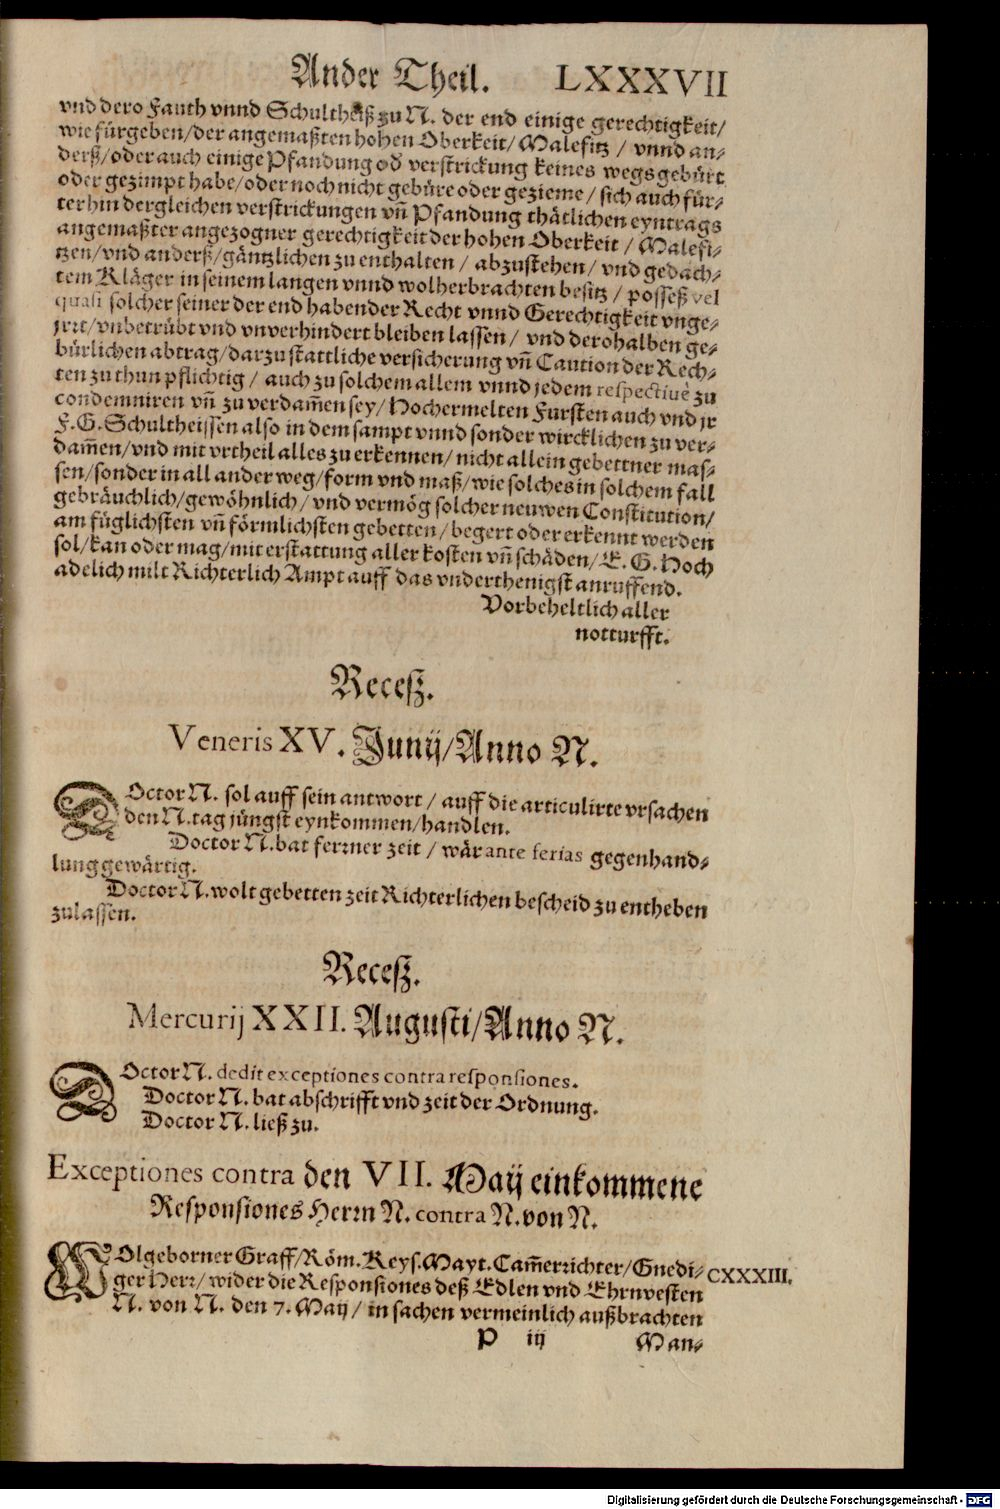 Ander Theil. LXXXVII
vnd dero Fauth vnnd Schultheiß zu N. der end einige gerechtigkeit/
wie fürgeben/der angemaßten hohen Oberkeit/ Malefitz / vnnd an-
derß/oder auch einige Pfandung od̕ verstrickung keines wegs gebürt
oder gezimpt habe/oder noch nicht gebüre oder gezieme / sich auch für-
terhin dergleichen verstrickungen vñ Pfandung thätlichen eyntrags
angemaßter angezogner gerechtigkeit der hohen Oberkeit / Malefi-
tzen/vnd anderß/gäntzlichen zu enthalten / abzustehen/ vnd gedach-
tem Kläger in seinem langen vnnd wolherbrachten besitz / posseß vel
quasi solcher seiner der end habender Recht vnnd Gerechtigkeit vnge-
jrrt/vnbetrübt vnd vnverhindert bleiben lassen/ vnd derohalben ge-
bürlichen abtrag/darzu stattliche versicherung vñ Caution der Rech-
ten zu thun pflichtig / auch zu solchem allem vnnd jedem respectiuè zu
condemniren vñ zu verdam̃en sey/Hochermelten Fursten auch vnd jr
F.G. Schultheissen also in dem sampt vnnd sonder wircklichen zu ver-
dam̃en/vnd mit vrtheil alles zu erkennen/ nicht allein gebettner mas-
sen/sonder in all ander weg/form vnd maß/wie solches in solchem fall
gebräuchlich/gewöhnlich/ vnd vermög solcher neuwen Constitution/
am füglichsten vñ förmlichsten gebetten/begert oder erkennt werden
sol/kan oder mag/mit erstattung aller kosten vñ schäden/ E. G. Hoch
adelich milt Richterlich Ampt auff das vnderthenigst anruffend.
Vorbeheltlich aller
notturfft.
Receß.
Veneris XV. Junij/Anno N.
DOctor N. sol auff sein antwort / auff die articulirte vrsachen
den N. tag jüngst eynkommen/handlen.
Doctor N. bat ferrner zeit / wär ante ferias gegenhand-
lung gewärtig.
Doctor N. wolt gebetten zeit Richterlichen bescheid zu entheben
zulassen.
Receß.
Mercurij XXII. Augusti/Anno N.
DOctor N. dedit exceptiones contra responsiones.
Doctor N. bat abschrifft vnd zeit der Ordnung.
Doctor N. ließ zu.
Exceptiones contra den VII. Maij einkommene
Responsiones Herrn N. contra N. von N.
WOlgeborner Graff/Röm. Keys. Mayt. Cam̃errichter/Gnedi-
ger Herr/ wider die Responsiones deß Edlen vnd Ehrnvesten CXXXIII.
N. von N. den 7. Maij / in sachen vermeinlich außbrachten
P iij Man-
Digitalisierung gefördert durch die Deutsche Forschungsgemeinschaft - DFG